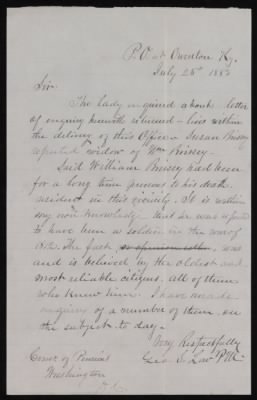 P.O. at Owenton Ky.
July 28th 1883
Sir.
The lady enquired about - letter
of enquiry herewith returned - lives within
the delivery of this Office - Susan
reputed widow of Wm
Said William had been
for a long time previous to his death
resident in this county. It is within
my own knowledge that he was reputed
to have been a soldier in the war of
1812. The fact so opinion, was
and is believed by the oldest and
most reliable citizens, all of them
who knew him. I have made
enquiry of a number of them on
the subject to day.
Very Respectfully
Geo. S. Law P.M.
Comr of Pensions
Washington
D.C.